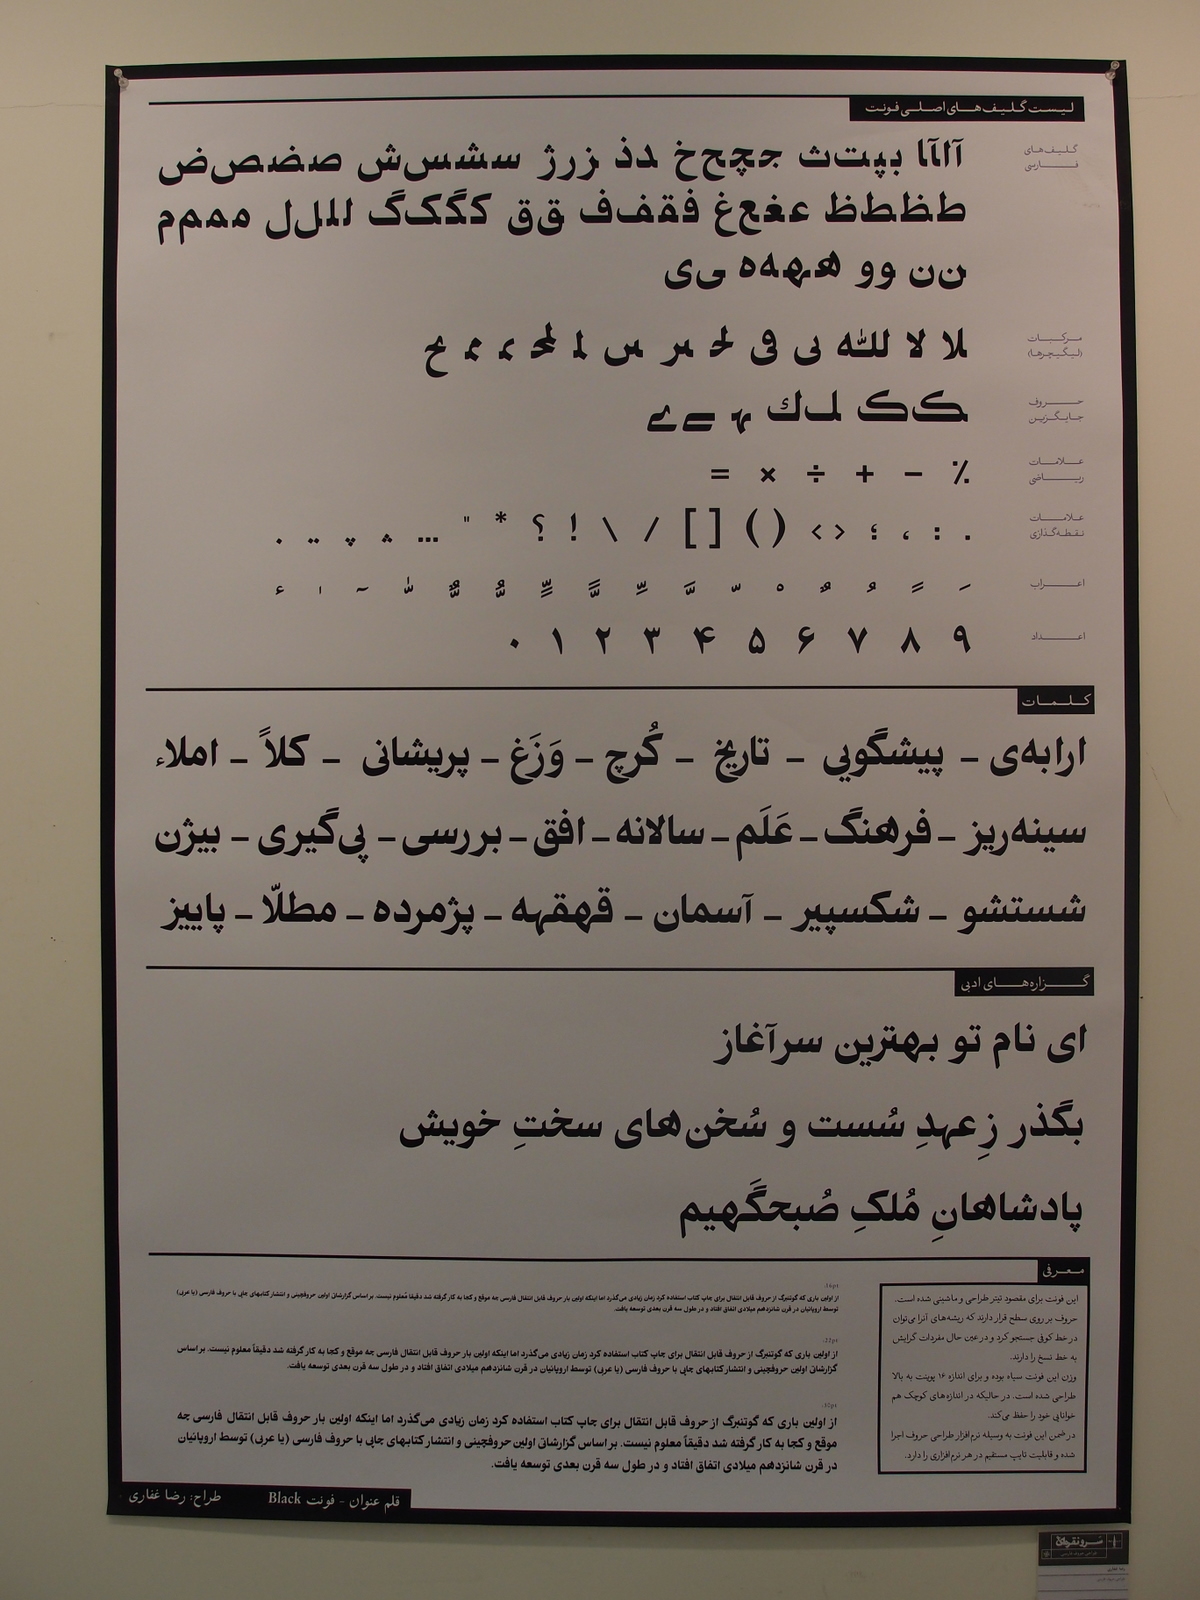 لیست گلیف‌های اصلی فونت
گلیف‌های
فارسی
آاآا بپتث جچحخ دذ زرژ سشس‌ش صضص‌ض
طظطظ عغع‌غ فقفف قق کگک‌گ لللل مممم
نن وو هههه یی
مرکبات
(لیگیچرها)
حروف
جایگزین
علامات
ریاضی
٪ − + ÷ × =
علامات
نقطه‌گذاری
اعراب
اعداد
۹ ۸ ۷ ۶ ۵ ۴ ۳ ۲ ۱ ۰
کلمات
ارابه‌ی – پیشگویی – تاریخ – کُرچ – وَزَغ – پریشانی – کلاً – املاء
سینه‌ریز – فرهنگ – عَلَم – سالانه – افق – بررسی – پی‌گیری – بیژن
شستشو – شکسپیر – آسمان – قهقهه – پژمرده – مطلّا – پاییز
گزاره‌های ادبی
ای نام تو بهترین سرآغاز
بگذر زِعهدِ سُست و سُخن‌های سختِ خویش
پادشاهانِ مُلکِ صُبحگَهیم
معرفی
این فونت برای مقصود تیتر طراحی و ماشینی شده است.
حروف بر روی سطح قرار دارند که ریشه‌های آنرا می‌توان
در خط کوفی جستجو کرد و در عین حال مفردات گرایش
به خط نسخ را دارند.
وزن این فونت سیاه بوده و برای اندازه ۱۶ پوینت به بالا
طراحی شده است. در حالیکه در اندازه‌های کوچک هم
خوانایی خود را حفظ می‌کند.
در ضمن این فونت به وسیله نرم‌افزار طراحی حروف اجرا
شده و قابلیت تایپ مستقیم در هر نرم‌افزاری را دارد.
از اولین باری که گوتنبرگ از حروف قابل انتقال برای چاپ کتاب استفاده کرد زمان زیادی می‌گذرد اما اینکه اولین بار حروف قابل انتقال فارسی چه موقع و کجا به کار گرفته شد دقیقاً معلوم نیست. بر اساس گزارشاتی اولین حروفچینی و انتشار کتابهای چاپی با حروف فارسی (یا عربی)
توسط اروپائیان در قرن شانزدهم میلادی اتفاق افتاد و در طول سه قرن بعدی توسعه یافت.
از اولین باری که گوتنبرگ از حروف قابل انتقال برای چاپ کتاب استفاده کرد زمان زیادی می‌گذرد اما اینکه اولین بار حروف قابل انتقال فارسی چه موقع و کجا به کار گرفته شد دقیقاً معلوم نیست. بر اساس
گزارشاتی اولین حروفچینی و انتشار کتابهای چاپی با حروف فارسی (یا عربی) توسط اروپائیان در قرن شانزدهم میلادی اتفاق افتاد و در طول سه قرن بعدی توسعه یافت.
از اولین باری که گوتنبرگ از حروف قابل انتقال برای چاپ کتاب استفاده کرد زمان زیادی می‌گذرد اما اینکه اولین بار حروف قابل انتقال فارسی چه
موقع و کجا به کار گرفته شد دقیقاً معلوم نیست. بر اساس گزارشاتی اولین حروفچینی و انتشار کتابهای چاپی با حروف فارسی (یا عربی) توسط اروپائیان
در قرن شانزدهم میلادی اتفاق افتاد و در طول سه قرن بعدی توسعه یافت.
قلم عنوان - فونت Black طراح: رضا غفاری